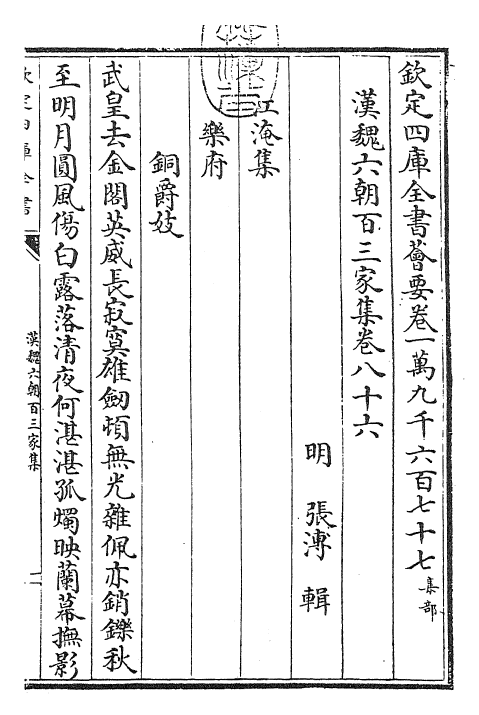 欽定四庫全書薈要卷一萬九千六百七十七集部
漢魏六朝百三家集卷八十六
明 張溥 輯
江淹集
樂府
銅爵妓
武皇去金閣英威長寂寞雄劒頓無光雜佩亦銷鑠秋
至明月圓風傷白露落清夜何湛湛孤燭映蘭幕撫影
欽定四庫全書
漢魏六朝百三家集